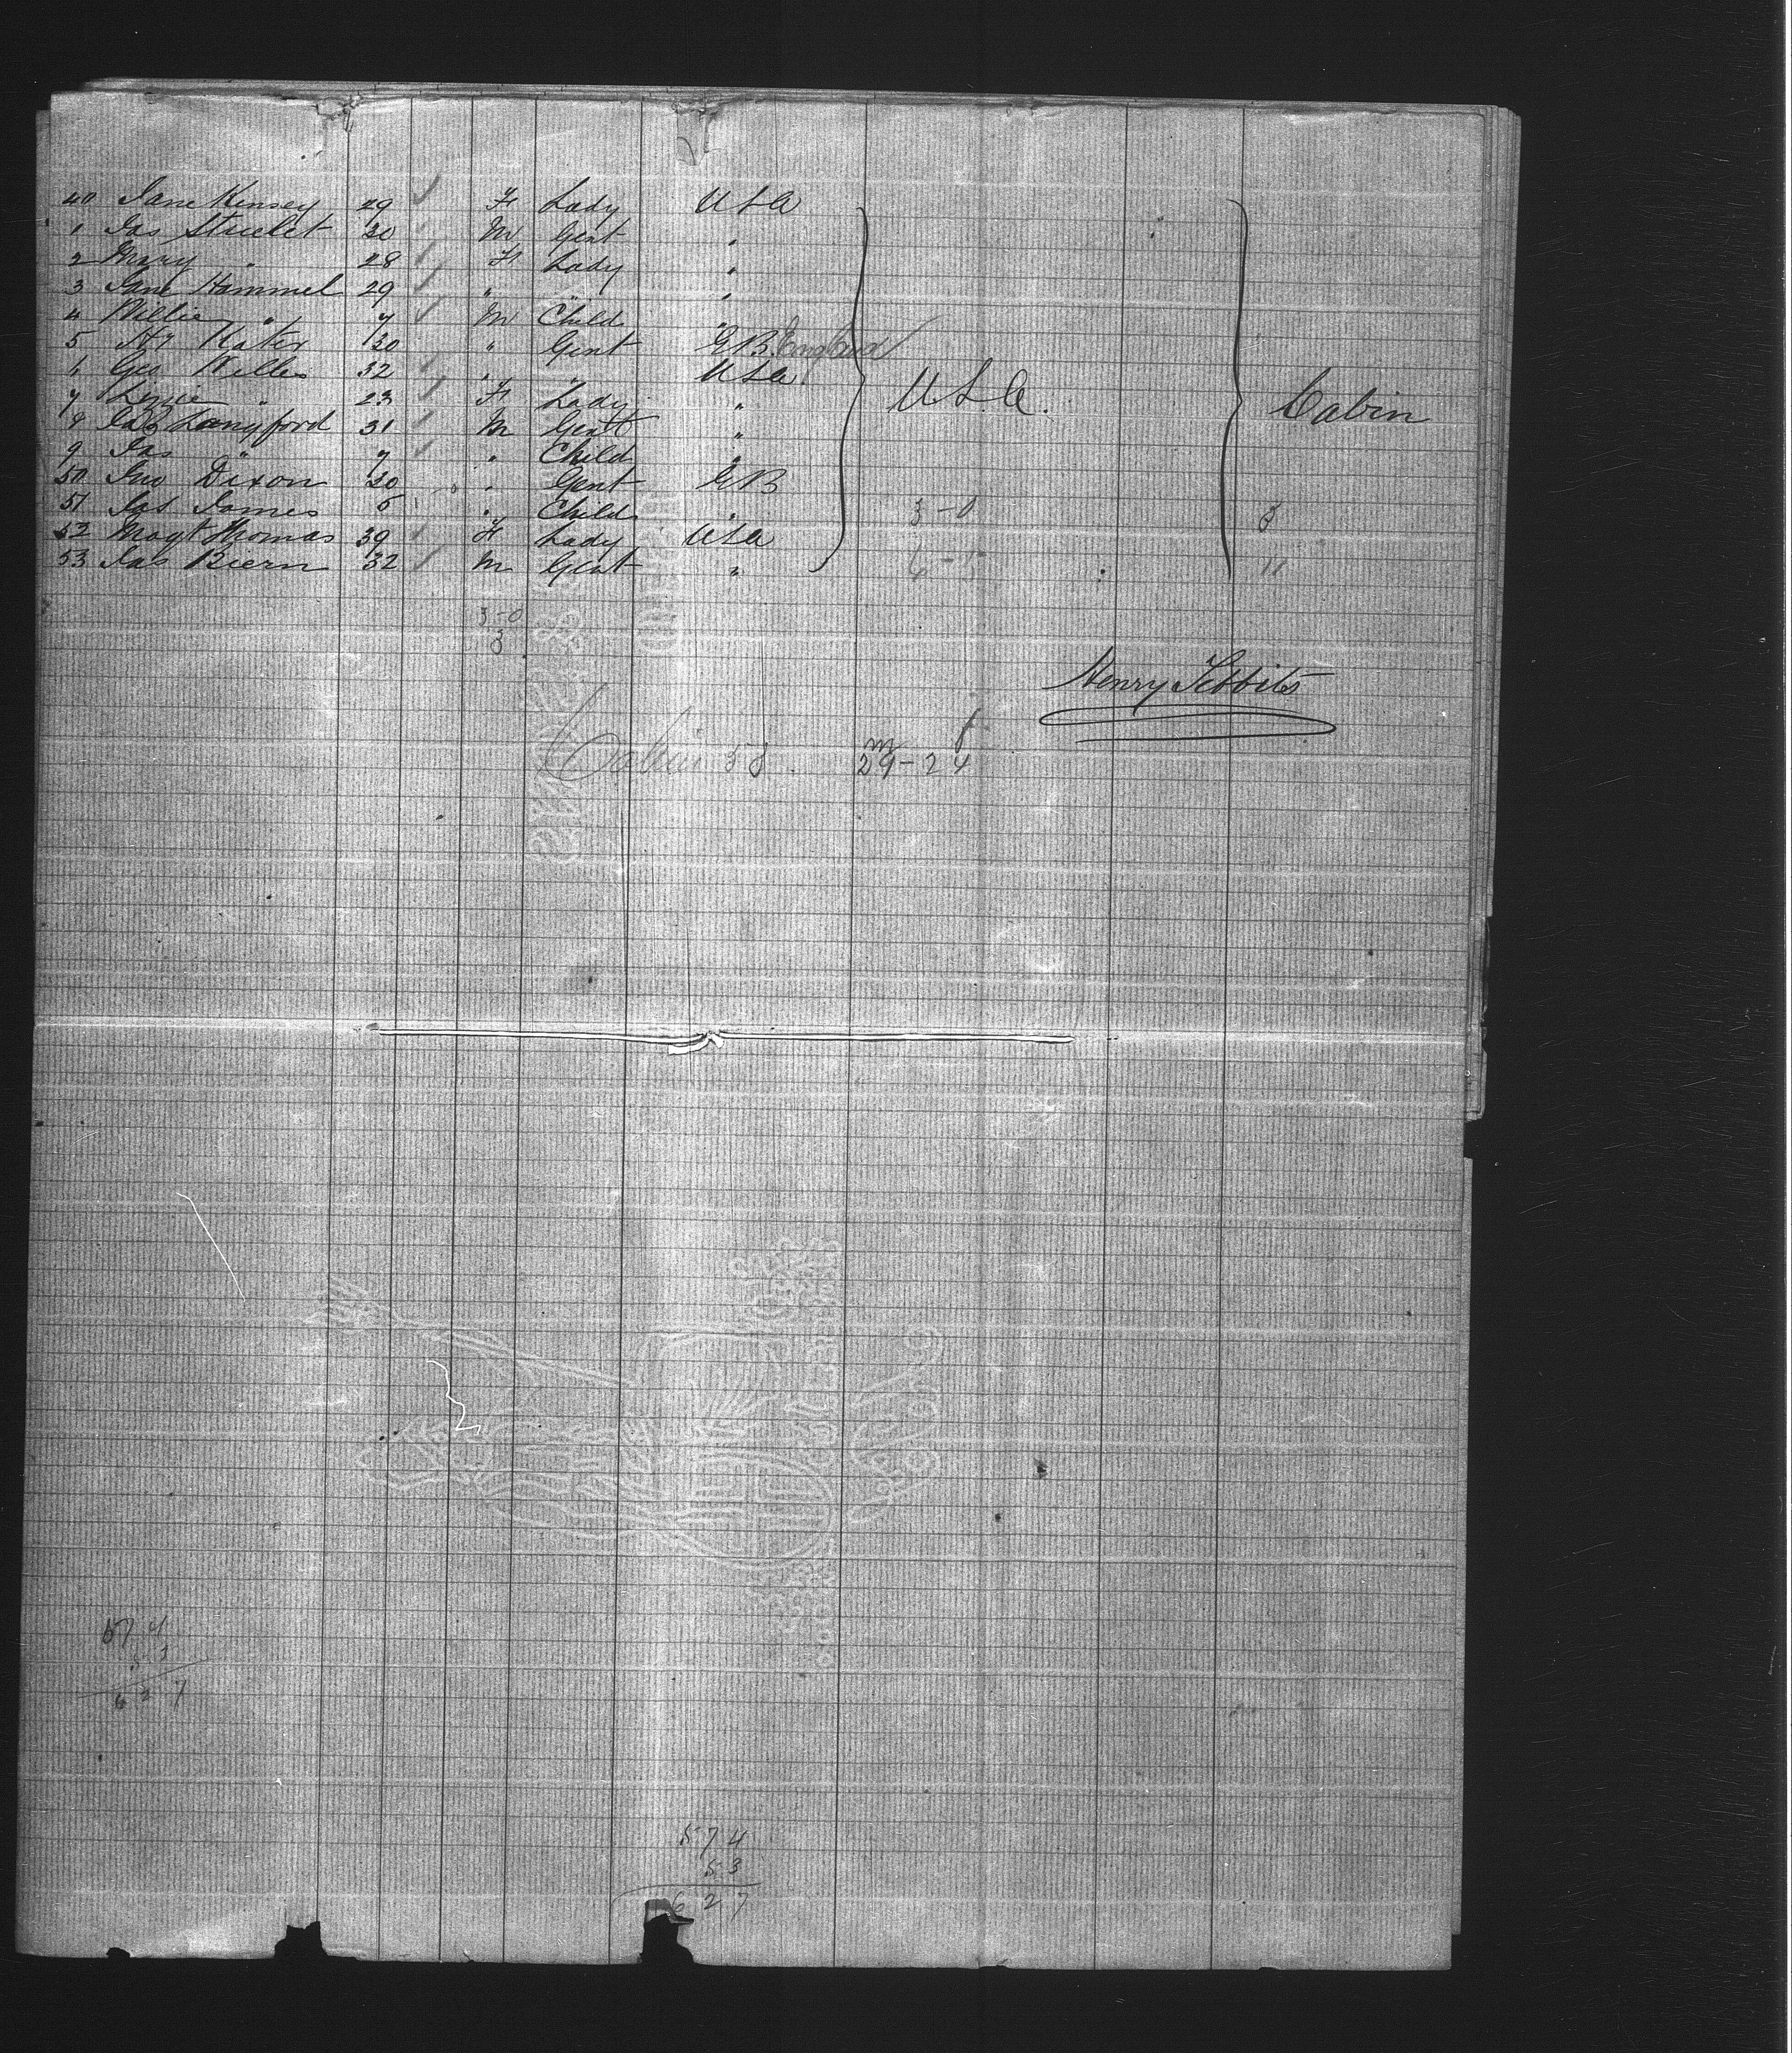 40 Jane Kinsey 29 ✓ F Lady USA
1 Jas Streelet 30 M Gent "
2 Mary " 28 ✓ F Lady "
3 Jane Hammel 29 ✓ " " "
4 Willie " 7 ✓ M Child "
5 Hy Kater 30 " Gent GB England
6 Geo Willes 32 ✓ " " USA
7 Lizzie " 23 ✓ F Lady "
8 Langford 31 ✓ M Gent " USA. Cabin
9 Jas " 7 ✓ " Child "
50 Jno Dixon 30 " Gent GB
51 Jas James 6 " Child " 3-0 3
52 Magt Thomas 39 ✓ F Lady USA
53 Jas Biern 32 ✓ M Gent " 11
3-0
3
Henry Tebbits
m f
Cabin 53. 29-24
574
53
627
574
53
627